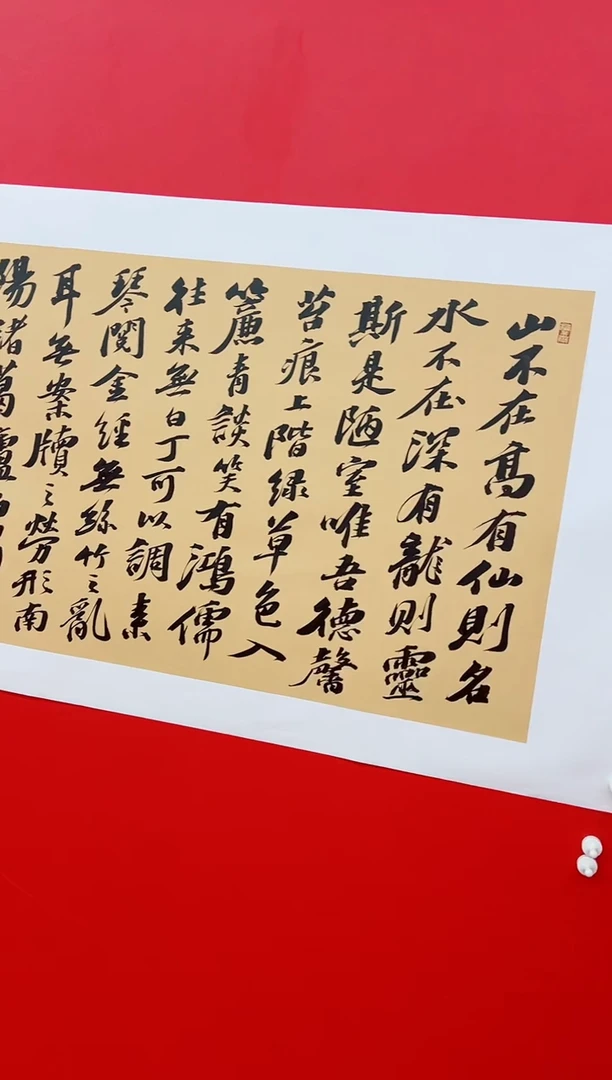 山不在高有仙則名
水不在深有龍則靈
斯是陋室唯吾德馨
苔痕上階綠草色入
簾青談笑有鴻儒
往来無白丁可以調素
琴閱金經無絲竹之亂
耳無案牘之勞形南
陽諸葛廬